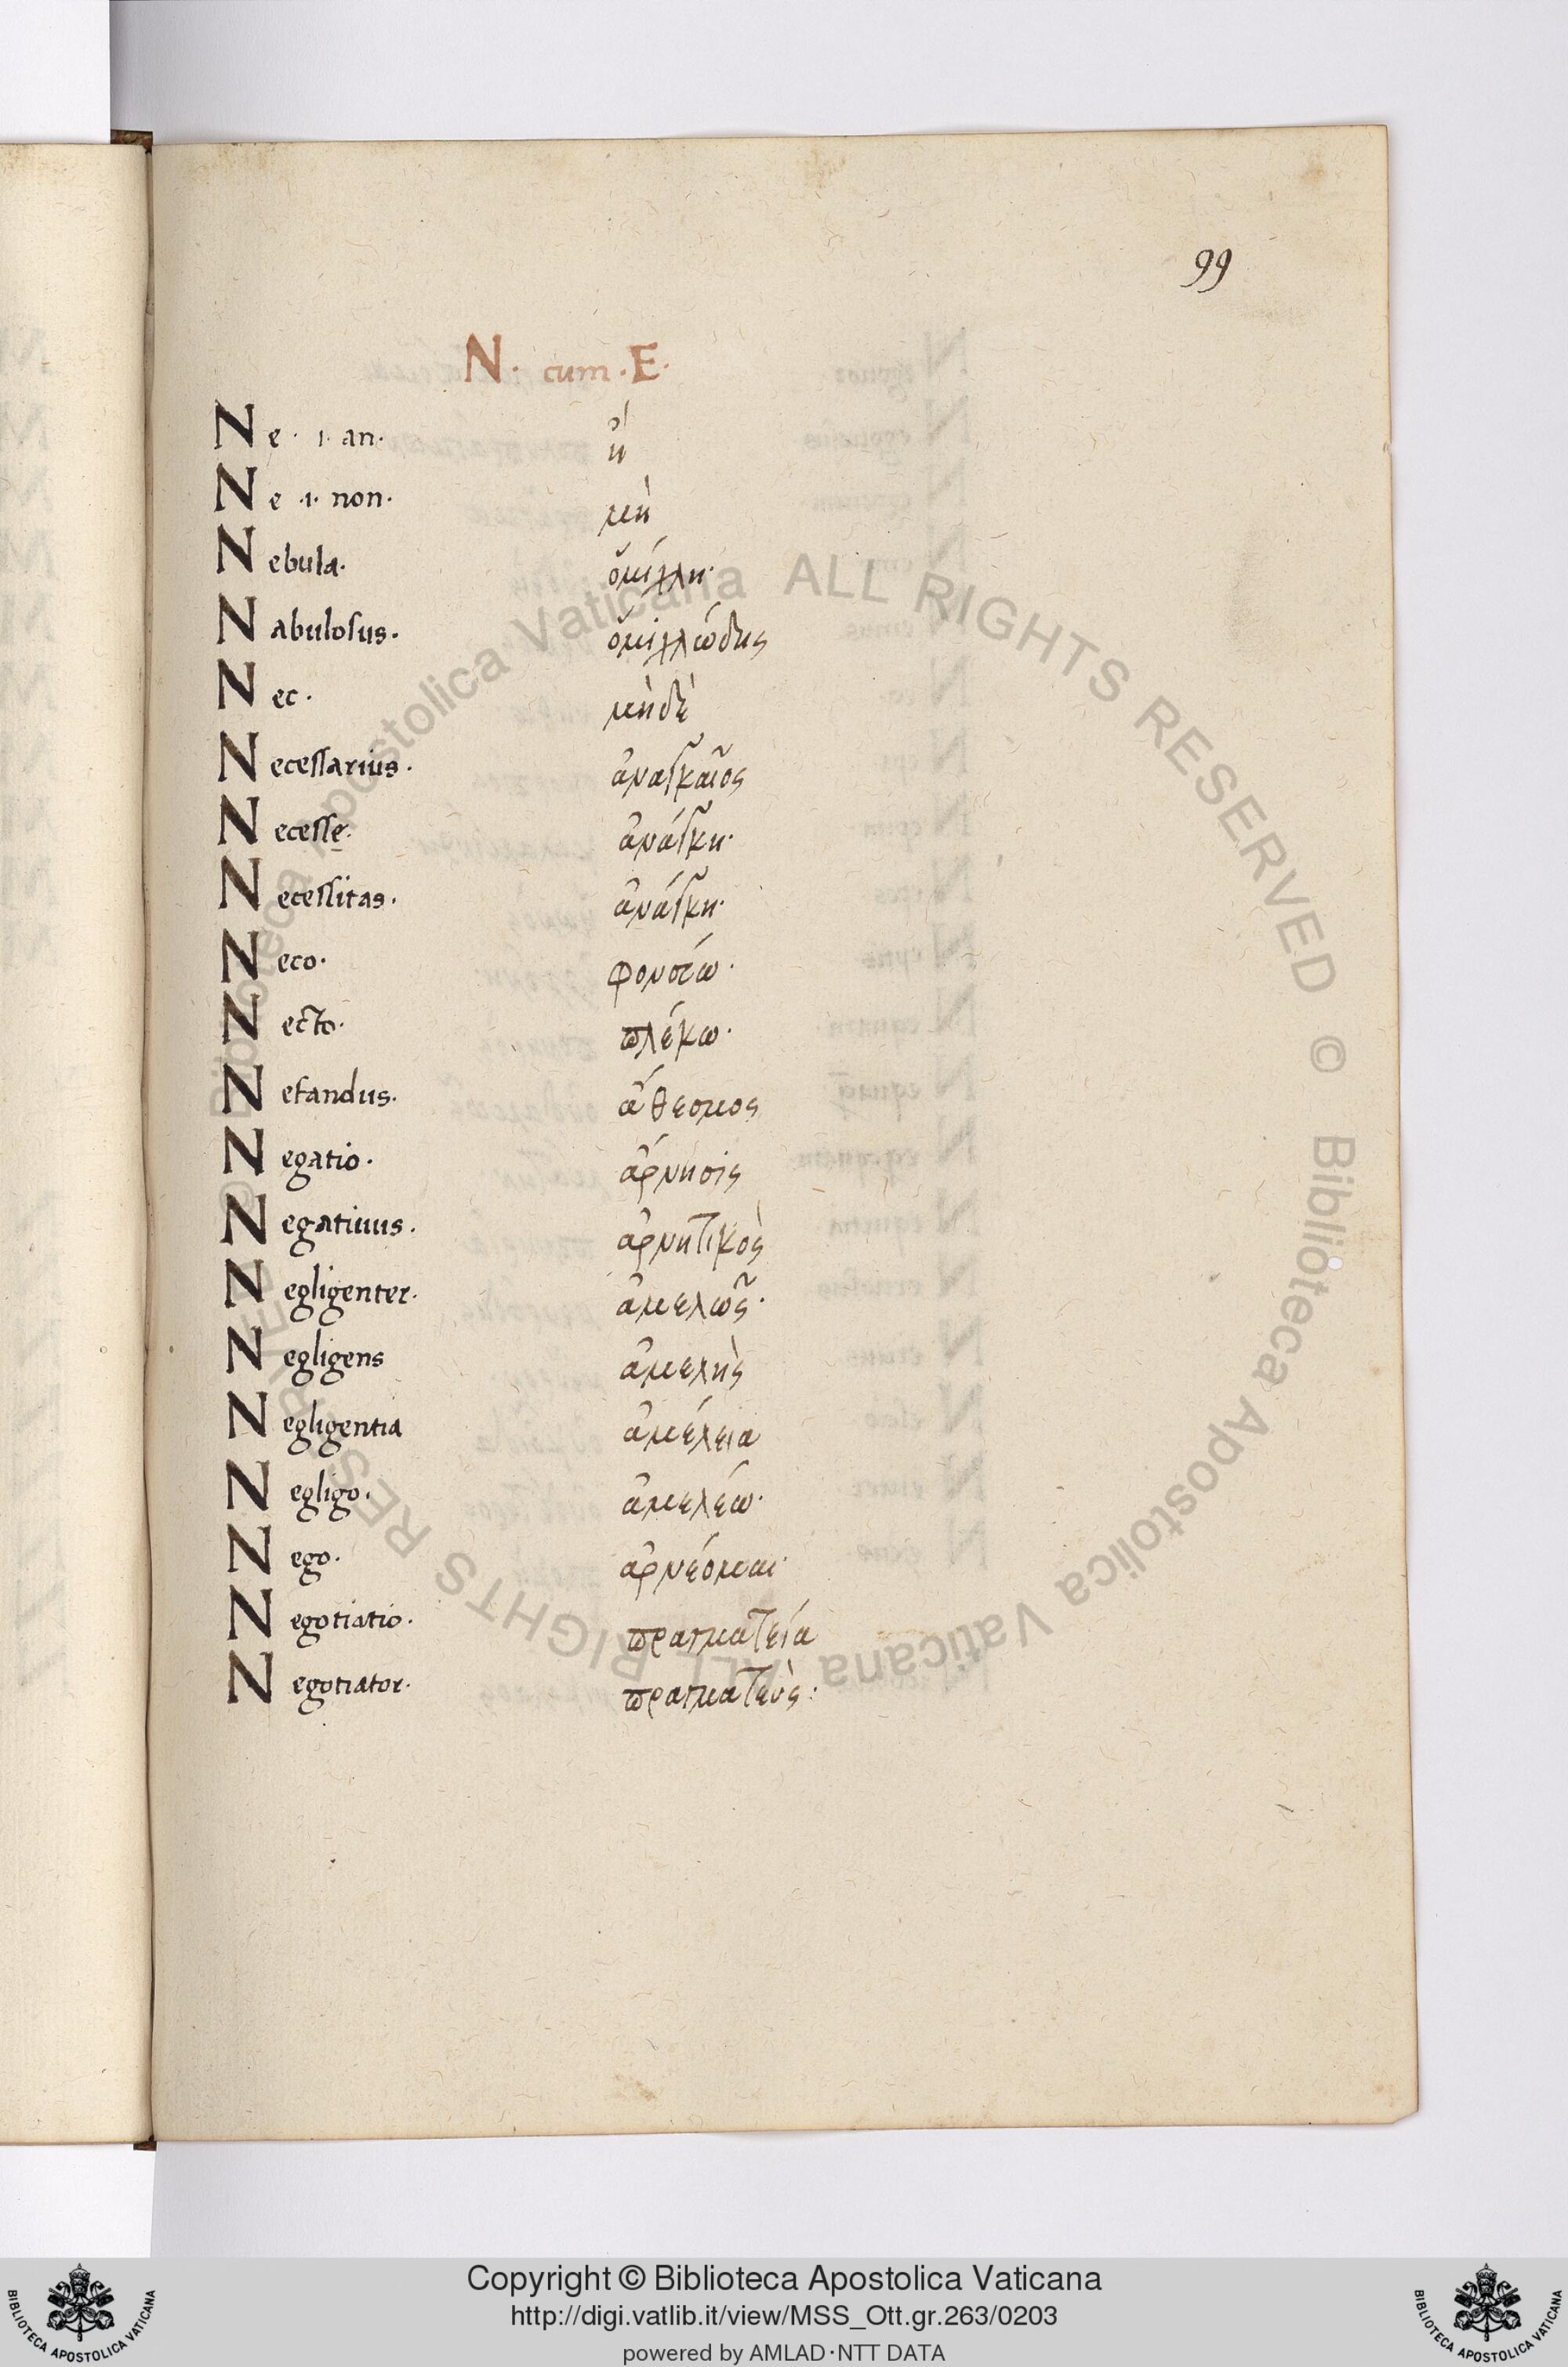 99
N· cum ·E·
Ne· ·i· an· ἤ
Ne ·i· non· μὴ
Nebula· ὀμίχλη·
Nabulosus· ὀμιχλώδης
Nec· μὴδὲ
Necessarius· ἀναγκαῖος
Necesse· ἀνάγκη·
Necessitas· ἀνάγκη·
Neco· φονεύω·
Necto· πλέκω·
Nefandus· ἄθεσμος
Negatio· ἄρνησις
Negatiuus· ἀρνητικὸς
Negligenter· ἀμελῶς·
Negligens ἀμελὴς
Negligentia ἀμέλεια
Negligo· ἀμελέω·
Nego· ἀρνέομαι·
Negotiatio· πραγματεία
Negotiator· πραγματεὺς:
© Biblioteca Apostolica Vaticana ALL RIGHTS RESERVED © Biblioteca Apostolica Vaticana ALL RIGHTS RESERVED
Copyright © Biblioteca Apostolica Vaticana
http://digi.vatlib.it/view/MSS_Ott.gr.263/0203
powered by AMLAD·NTT DATA
BIBLIOTECA APOSTOLICA VATICANA
BIBLIOTECA APOSTOLICA VATICANA